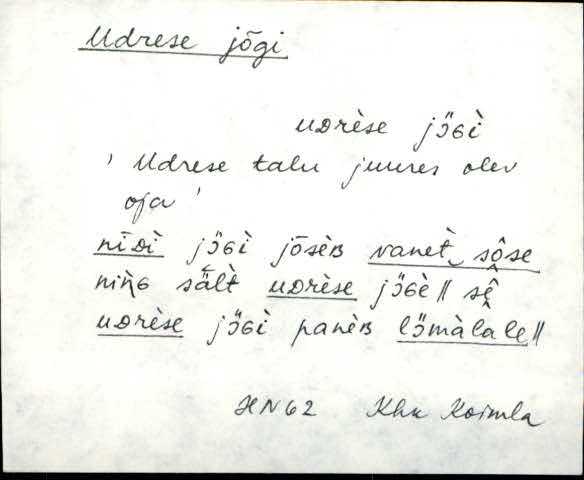 Udrese jõgi
uᴅrèse jɔ̈ɢì
' Udrese talu juures olev
oja '
nīᴅì jɔ̈ɢì jōsèʙ vanet̀‿sôse
niǹɢ sält̀ uᴅrèse jɔ̈ɢè ǁ sê̬
uᴅrèse jɔ̈ɢì panèʙ lɔ̈màla̬le̬ ǁ
HN62 Khk Koimla